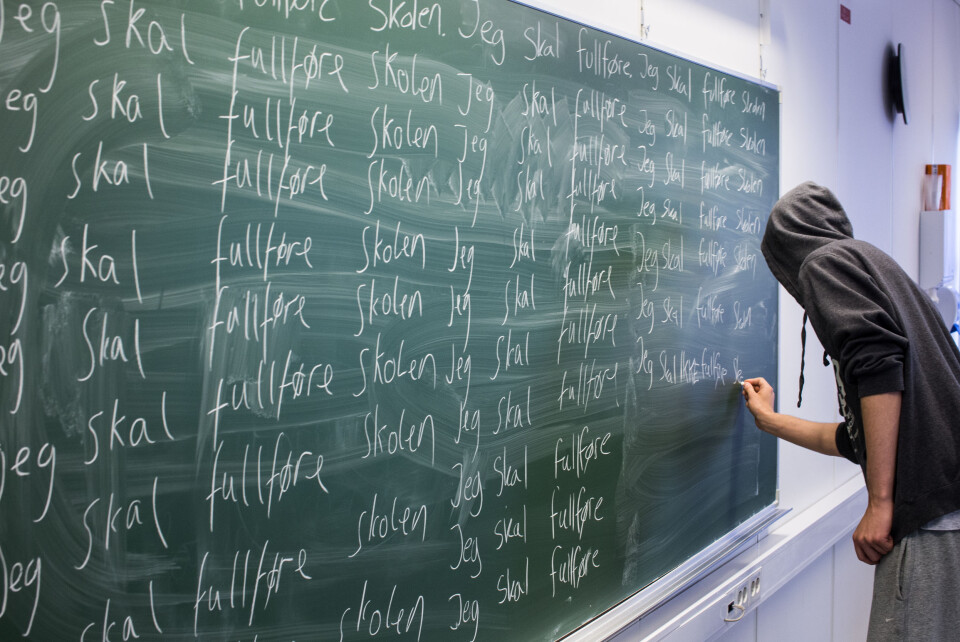 fullføre Skolen. Jeg skal fullføre. Jeg skal fullføre skolen
Jeg skal fullføre skolen Jeg skal fullføre Jeg skal fullføre skolen
Jeg skal fullføre skolen Jeg skal fullføre Jeg skal fullføre skolen
Jeg skal fullføre skolen Jeg skal fullføre Jeg skal fullføre skolen
Jeg skal fullføre skolen Jeg skal fullføre Jeg skal fullføre skolen
Jeg skal fullføre skolen Jeg skal fullføre Jeg skal fullføre skolen
Jeg skal fullføre skolen Jeg skal fullføre Jeg skal fullføre
Jeg skal fullføre skolen Jeg skal fullføre
skal fullføre skolen Jeg skal fullføre
skolen Jeg skal fullføre
Jeg skal fullføre